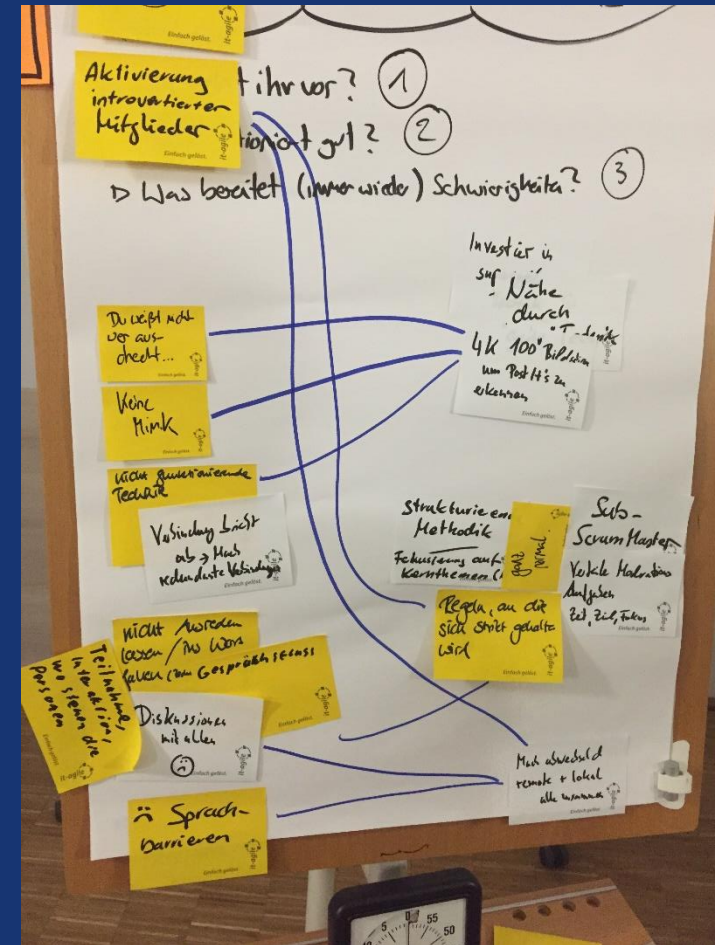 Einfach gelöst.
it-agile
Aktivierung
introvertierter
Mitglieder
Einfach gelöst.
it-agile
t ihr vor? 1
tioniert gut? 2
▷ Was bereitet (immer wieder) Schwierigkeiten? 3
Investier in
Nähe
durch
4K 100" Bildschirm
um Post It's zu
erkennen
Einfach gelöst.
it-agile
Du weißt nicht
wer aus-
checkt...
Einfach gelöst.
it-agile
Keine
Mimik
Einfach gelöst.
it-agile
nicht funktionierende
Technik
Verbindung bricht
ab → Mach
redundante Verbindungen
Einfach gelöst.
it-agile
Methodik
Fokussierung auf
Kernthemen
ganz
normal
Sub-
Scrum Master
Lokale Moderations
Aufgaben
Zeit, Ziel, Fokus
Einfach gelöst.
it-agile
Regeln, an die
sich strikt gehalten
wird
Einfach gelöst.
it-agile
nicht Ausreden
lassen / ins Wort
fallen
Gesprächsfluss
Einfach gelöst.
it-agile
Teilnahme,
Interaktion,
wo stehen die
Personen
Einfach gelöst.
it-agile
Diskussionen
mit allen
Einfach gelöst.
it-agile
Sprach-
barrieren
Einfach gelöst.
it-agile
Mach abwechselnd
remote + lokal
alle zusammen
Einfach gelöst.
it-agile
5 0 55
10 50